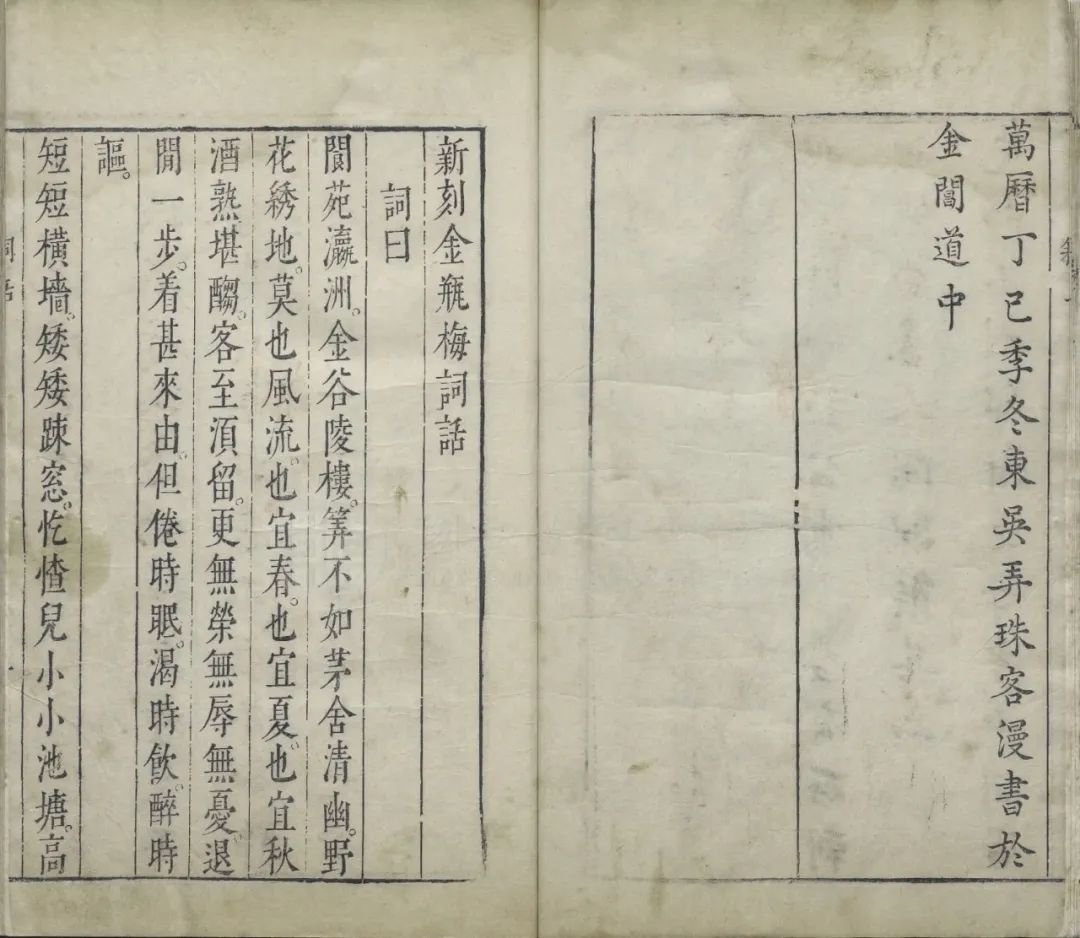 萬曆丁巳季冬東吳弄珠客漫書於
金閶道中
新刻金瓶梅詞話
詞曰
閬苑瀛洲。金谷陵樓。筭不如茅舍清幽。野
花綉地。莫也風流。也宜春。也宜夏。也宜秋
酒熟堪䣯。客至湏留。更無榮無辱無憂。退
閒一步。着甚來由。但倦時眠。渴時飲。醉時
謳。
短短橫墻。矮矮踈窓。忔㤞兒小小池塘。高